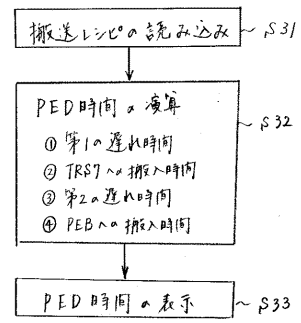 搬送レシピの読み込み ～S31
PED時間の演算 ～S32
① 第1の遅れ時間
② TRS7への搬入時間
③ 第2の遅れ時間
④ PEBへの搬入時間
PED時間の表示 ～S33